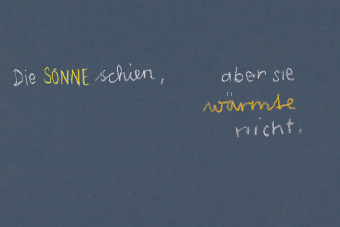 Die SONNE schien,
aber sie
wärmte
nicht.